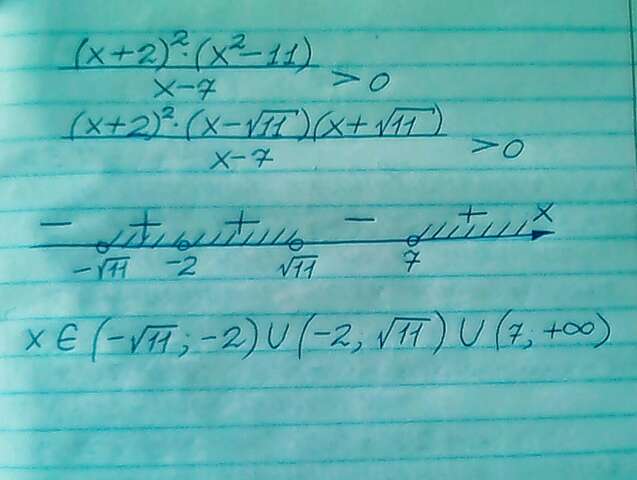 (x+2)²·(x²-11)
x-7 > 0
(x+2)²·(x-√11)(x+√11)
x-7 > 0
- + + - + x
-√11 -2 √11 7
x ∈ (-√11; -2) ∪ (-2; √11) ∪ (7; +∞)